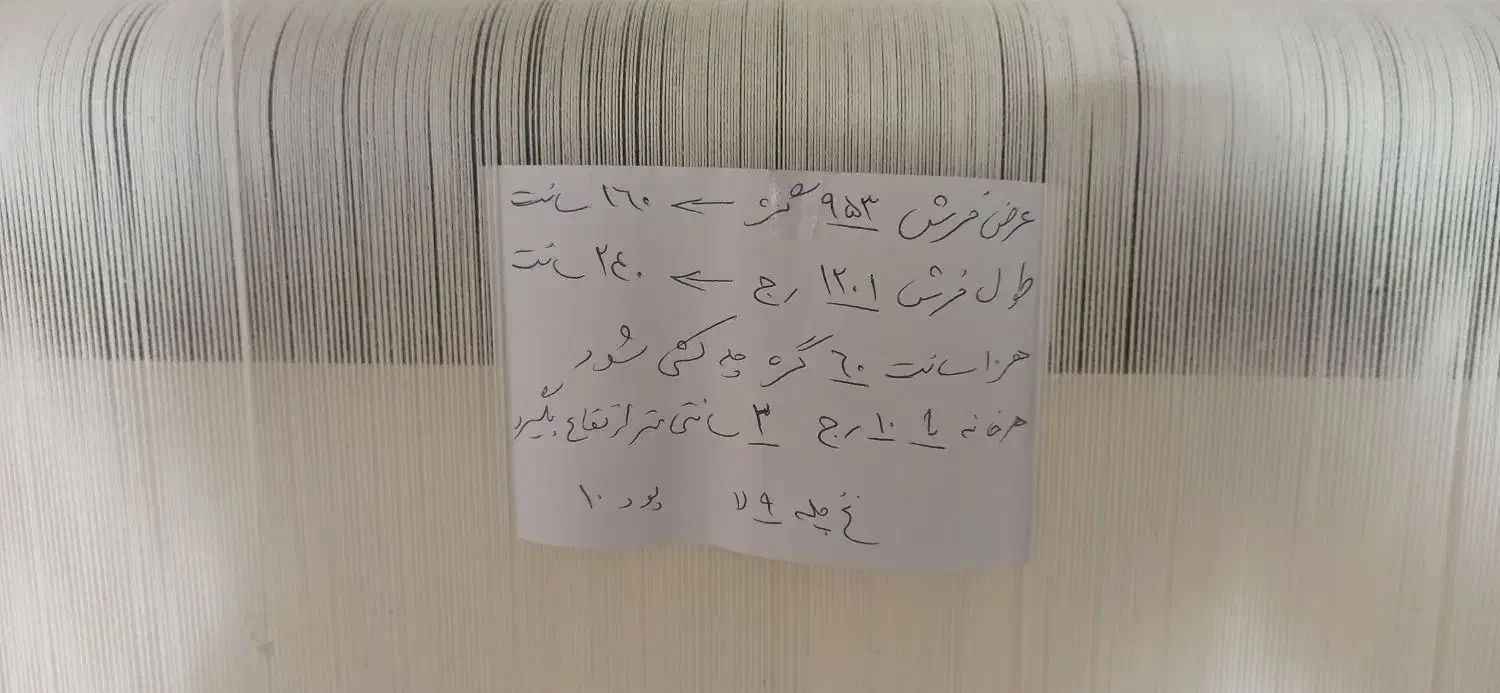 عرض فرش ۹۵۳ گره ← ۱۶۰ سانت
طول فرش ۱۲۰۱ رج ← ۲۴۰ سانت
هر ۱۰ سانت ۶۰ گره چله کشی شود
هر خانه با ۱۰ رج ۳ سانتی متر ارتفاع بگیرد
نخ چله ۹ لا پود ۱۰